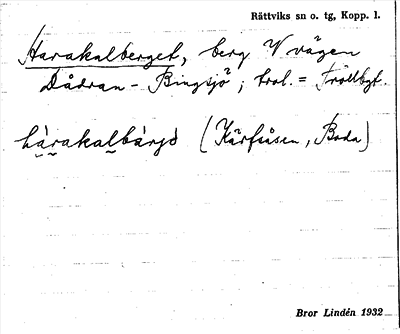 Rättviks sn o. tg, Kopp. l.
Harakalberget, berg V vägen
Dådran - Bingsjö; trol. = Trollbgt.
hàrakalbàrjò (Kärfsåsen, Boda)
Bror Lindén 1932